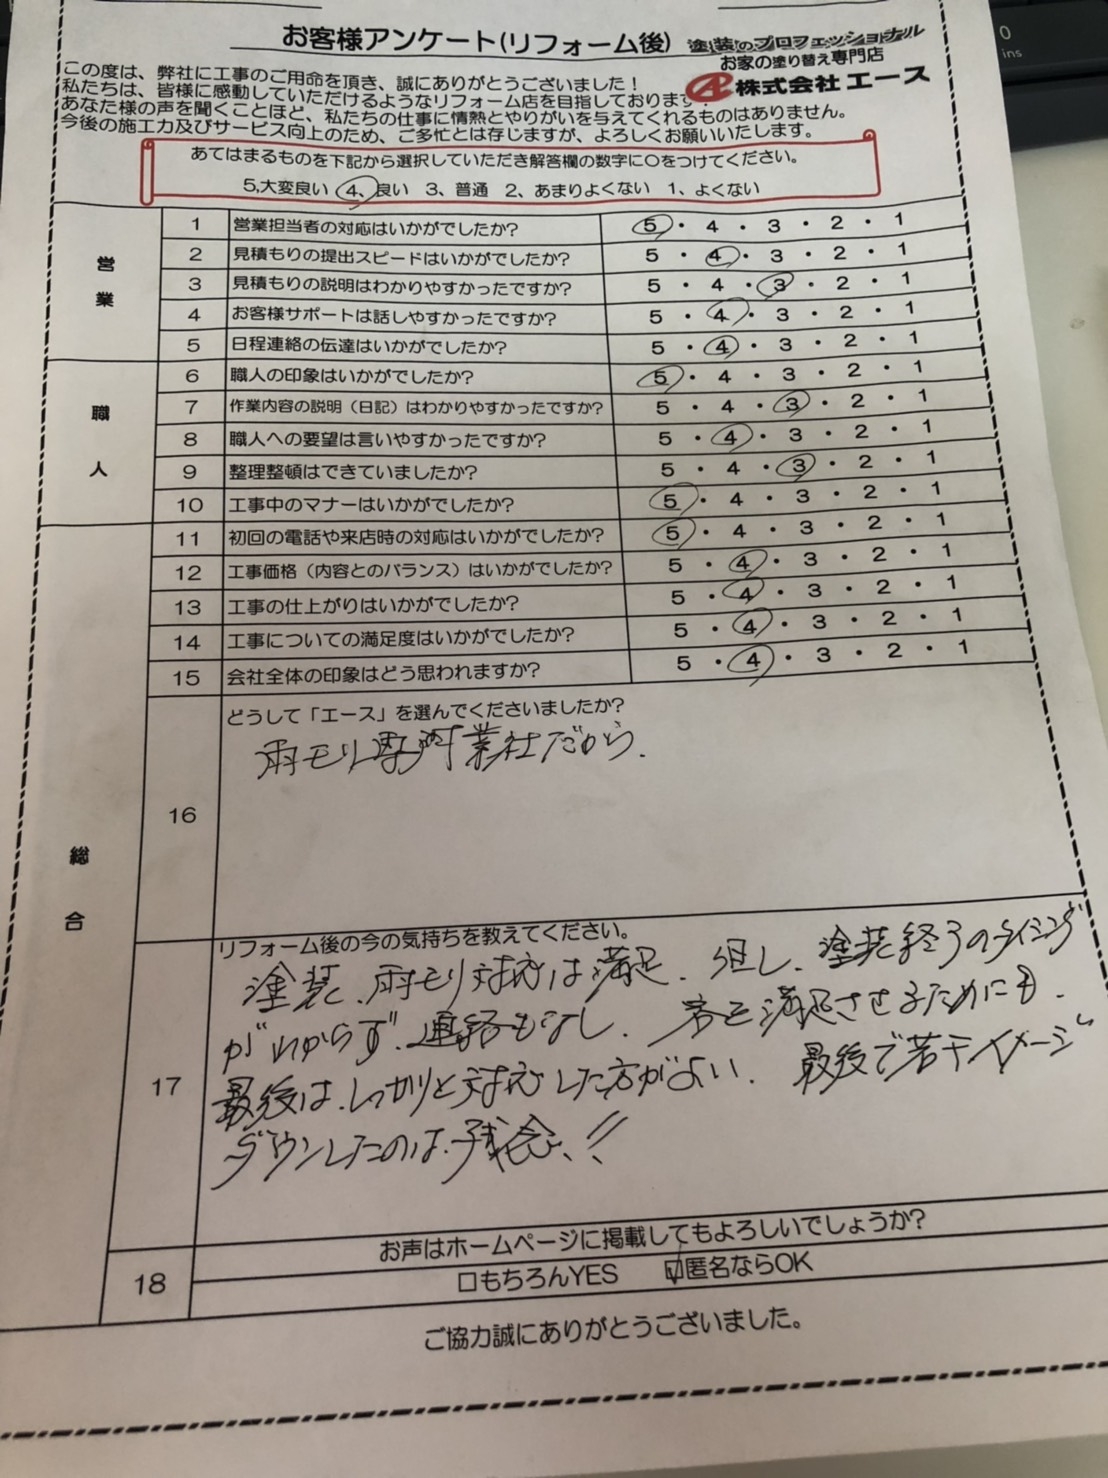 お客様アンケート(リフォーム後)
塗装のプロフェッショナル
お家の塗り替え専門店
株式会社 エース
この度は、弊社に工事のご用命を頂き、誠にありがとうございました!
私たちは、皆様に感動していただけるようなリフォーム店を目指しております!
あなた様の声を聞くことほど、私たちの仕事に情熱とやりがいを与えてくれるものはありません。
今後の施工力及びサービス向上のため、ご多忙とは存じますが、よろしくお願いいたします。
あてはまるものを下記から選択していただき解答欄の数字に○をつけてください。
5,大変良い 4、良い 3、普通 2、あまりよくない 1、よくない
営業
1 営業担当者の対応はいかがでしたか? 5・4・3・2・1
2 見積もりの提出スピードはいかがでしたか? 5・4・3・2・1
3 見積もりの説明はわかりやすかったですか? 5・4・3・2・1
4 お客様サポートは話しやすかったですか? 5・4・3・2・1
5 日程連絡の伝達はいかがでしたか? 5・4・3・2・1
職人
6 職人の印象はいかがでしたか? 5・4・3・2・1
7 作業内容の説明(日記)はわかりやすかったですか? 5・4・3・2・1
8 職人への要望は言いやすかったですか? 5・4・3・2・1
9 整理整頓はできていましたか? 5・4・3・2・1
10 工事中のマナーはいかがでしたか? 5・4・3・2・1
総合
11 初回の電話や来店時の対応はいかがでしたか? 5・4・3・2・1
12 工事価格(内容とのバランス)はいかがでしたか? 5・4・3・2・1
13 工事の仕上がりはいかがでしたか? 5・4・3・2・1
14 工事についての満足度はいかがでしたか? 5・4・3・2・1
15 会社全体の印象はどう思われますか? 5・4・3・2・1
16 どうして「エース」を選んでくださいましたか?
雨モリ専門業社だから.
17 リフォーム後の今の気持ちを教えてください。
塗装、雨モリ対応は満足. 但し、塗装終了のタイミング
がわからず、連絡もなし. 客を満足させるためにも.
最後は、しっかりと対応した方がよい. 最後で若干イメージ
ダウンしたのは、残念、!!
18 お声はホームページに掲載してもよろしいでしょうか?
□もちろんYES ☑匿名ならOK
ご協力誠にありがとうございました。
0
ins